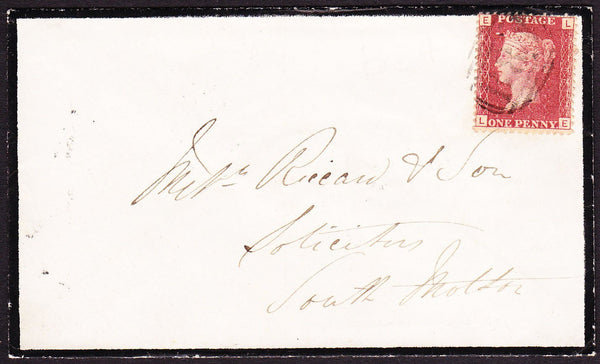 E POSTAGE L
L ONE PENNY E
Messrs Riccard & Son
Solicitors
South Molton